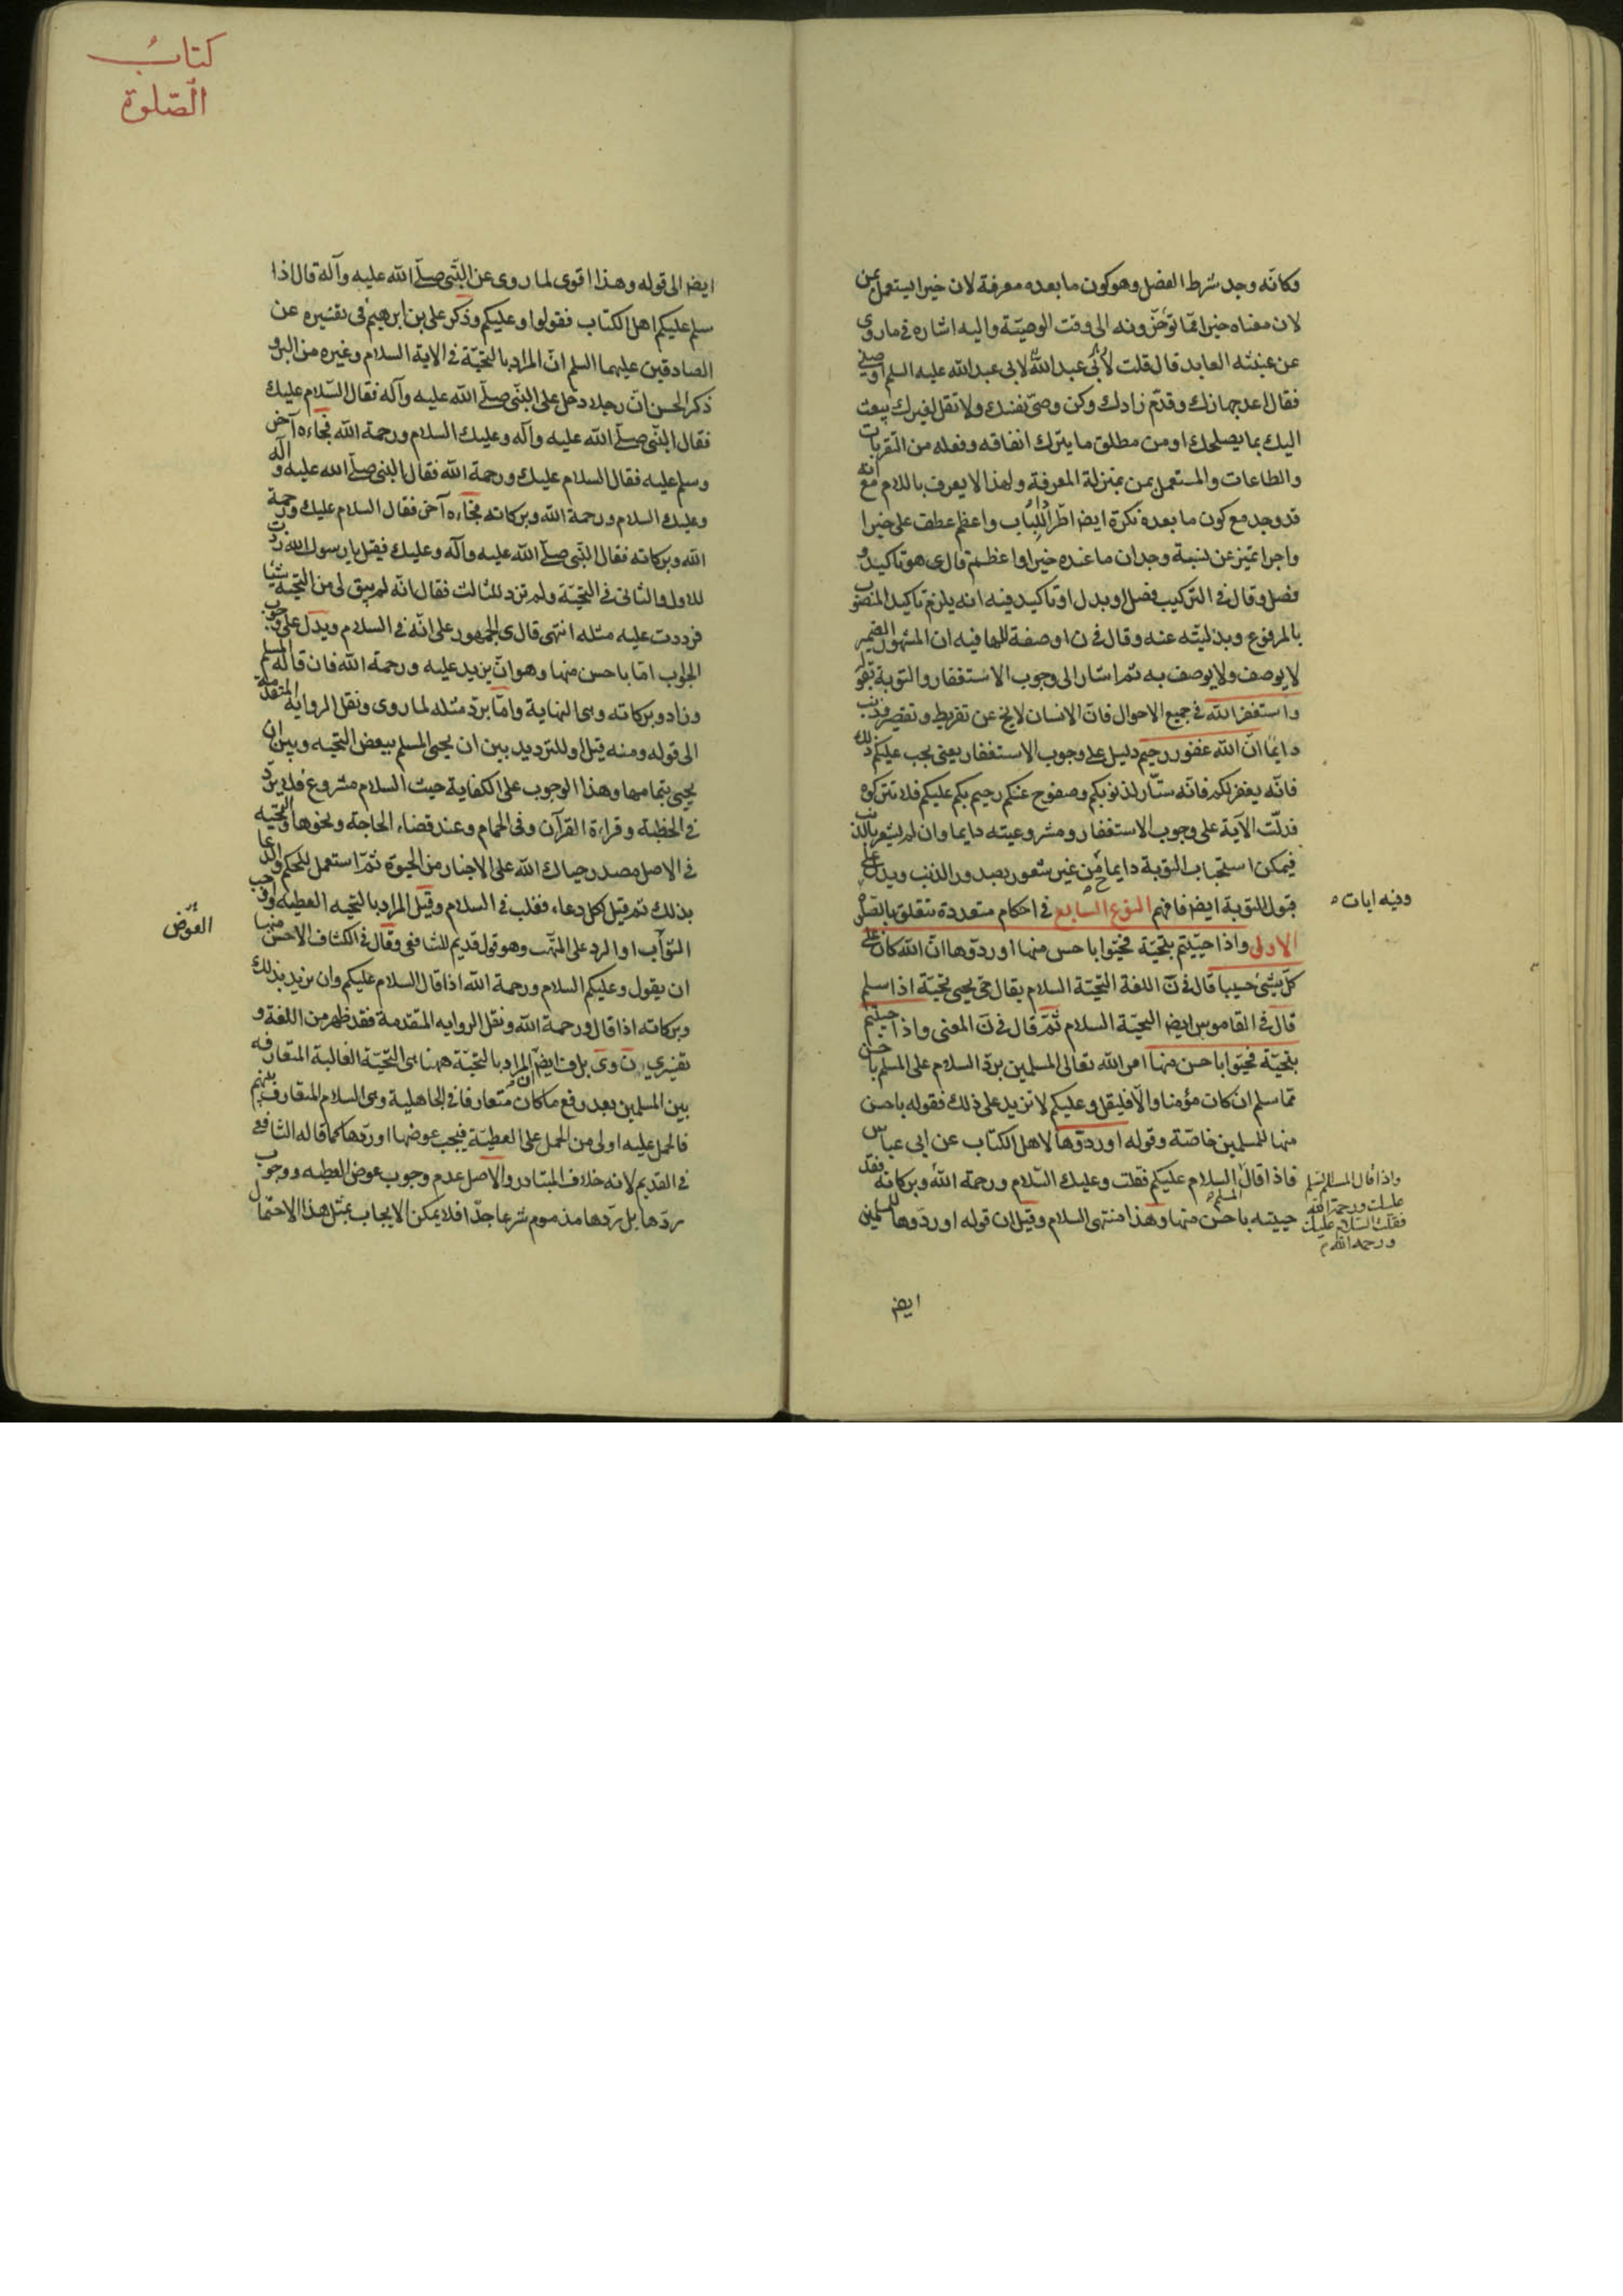 وكانّه وجد شرط الفصل وهو كون ما بعده معرفة لان خيرا يستعمل بمن
لان معناه خيرا ممّا تؤخّرونه الى وقت الوصيّة واليه اشاره فى ما روى
عن عنبثه العابد قال قلت لأبى عبد الله لابى عبد الله عليه السلم اوصنى
فقال اعد جهازك وقدّم زادك وكن وصىّ نفسك ولا تقل لغيرك يبعث
اليك بما يصلحك او من مطلق ما يترك انفاقه وفعله من القربات
والطاعات والمستعمل بمن بمنزلة المعرفة ولهذا لا يعرف باللام مع انه
قد وجد مع كون ما بعده نكرة ايضا اللباب واعظم عطف على خيرا
واجرا تميز عن نسبة وجدان ما عنده خيرا واعظم قال ى هو تاكيد و
فصل وقال فى التركيب فصل او بدل او تاكيد فيه انه يلزم تاكيد المنصوب
بالمرفوع وبدليّته عنه وقال فى ن او صفة للها فيه ان المشهور الضمير
لا يوصف ولا يوصف به ثم اشار الى وجوب الاستغفار والتوبة بقو
واستغفر الله فى جميع الاحوال فان الانسان لا يخ عن تفريط وتقصير وذنب
دايما انّ الله غفور رحيم دليل على وجوب الاستغفار يعنى يجب عليكم ذلك
فانّه يغفر لكم فانّه ستّار لذنوبكم وصفوح عنكم رحيم بكم عليكم فلا تتركوه
فدلّت الآية على وجوب الاستغفار ومشروعيته دايما وان لم يشعر بالذنب
فيمكن استحباب التوبة دايما من غير شعور بصدور الذنب ويدل على
قبول التوبة ايضا فافهم النوع السابع فى احكام متعددة تتعلق بالصلوة
وفيه ايات
الاولى واذا حيّيتم بتحيّة فحيّوا باحسن منها او ردّوها انّ الله كان على
كلّ شىء حسيبا قال فى ن اللغة التحيّة السلام يقال حى يحيى تحيّة اذا سلم
قال فى القاموس ايضا التحيّة السلام ثمّ قال فى ن المعنى واذا حيّيتم
بتحيّة فحيّوا باحسن منها امر الله تعالى المسلمين بردّ السلام على المسلم باحسن
ممّا سلم ان كان مؤمنا والّا فليقل وعليكم لا تزيد على ذلك فقوله باحسن
منها للمسلمين خاصّة وقوله او ردّوها لاهل الكتاب عن ابى عباس
فاذا قال السلام عليكم فقلت وعليك السّلام ورحمة الله وبركاته فقد
حييته باحسن منها وهذا منتهى السلام وقيل ان قوله او ردّوها للمسلمين
واذا قال المسلم السّلم
عليك ورحمة الله
فقلت السلام عليك
ورحمه الله
ايضا
كتاب
الصّلوة
ايضا الى قوله وهذا اقوى لما روى عن النّبى صلّى الله عليه وآله قال اذا
سلم عليكم اهل الكتاب فقولوا وعليكم وذكر على بن ابرهيم فى تفسيره عن
الصادقين عليهما السلم انّ المراد بالتحيّة فى الاية السلام وغيره من البر و
ذكر الحسن انّ رجلا دخل على النّبى صلّى الله عليه وآله فقال السّلام عليك
فقال النّبى صلّى الله عليه وآله وعليك السلام ورحمة الله فجاءه آخر
وسلم عليه فقال السلام عليك ورحمة الله فقال النبى صلّى الله عليه وآله
وعليك السلام ورحمة الله وبركاته فجاءه آخر فقال السلام عليك ورحمة
الله وبركاته فقال النّبى صلّى الله عليه وآله وعليك فقيل يا رسول الله زدت
للاول والثانى فى التحيّة ولم تزد للثالث فقال انّه لم يبق لى من التحيّة شيئا
فرددت عليه مثله انتهى قال ى الجمهور على انّه فى السلام ويدل على وجوب
الجواب امّا باحسن منها وهو ان يزيد عليه ورحمة الله فان قاله المسلم
وزاد وبركاته وهى النهاية وامّا بردّ مثله لما روى ونقل الرواية المتقدمة
الى قوله ومنه قيل او للترديد بين ان يحيى المسلم ببعض التحيه وبين ان
يحيى بتمامها وهذا الوجوب على الكفاية حيث السلام مشروع فلا يردّ
فى الخطبة وقراءة القرآن وفى الحمام وعند قضاء الحاجة ونحوها والتحيه
فى الاصل مصدر حياك الله على الاخبار من الحيوة ثمّ استعمل للحكم والدعا
بذلك ثم قيل لكل دعاء فغلب فى السلام وقيل المراد بالتحيه العطيه واوجب
الثواب او الرد على المتهب وهو قول قديم للشافعى وقال فى الكشاف الاحسن منها
العوض
ان يقول وعليكم السلام ورحمة الله اذا قال السلام عليكم وان يزيد بذلك
وبركاته اذا قال ورحمة الله ونقل الروايه المتقدمة فقد ظهر من اللغة و
تفسيرى ن وى بل ف ايضا انّ المراد بالتحيّة ههنا هى التحيّة الغالبة المتعارفه
بين المسلمين بعد رفع ما كان متعارفا فى الجاهلية وهى السلام المتعارف بينهم
فالحمل عليه اولى من الحمل على العطيّة فيجب عوضها او ردّها كما قاله الشافعى
فى القديم لانه خلاف المتبادر والاصل عدم وجوب عوض العطيه ووجوب
ردّها بل ردّها مذموم شرعا جدّا فلا يمكن الايجاب بمثل هذا الاحتمال